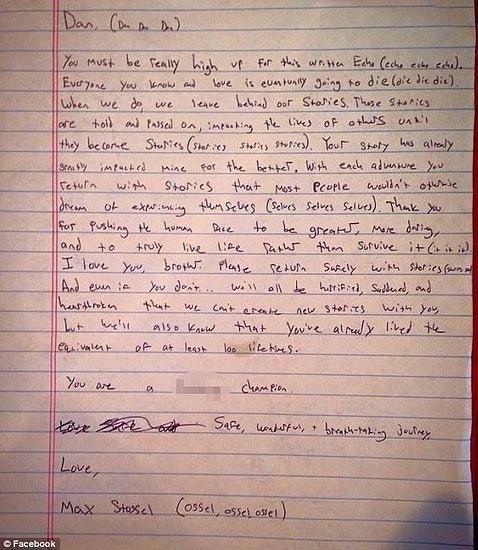 Dan, (Dan Dan Dan)
You must be really high up for this written Echo (echo echo echo).
Everyone you know and love is eventually going to die (die die die).
When we do, we leave behind our Stories. Those Stories
are told and passed on, impacting the lives of others until
they become Stories (stories stories stories). Your story has already
greatly impacted mine for the better. With each adventure you
return with Stories that most people wouldn't otherwise
dream of experiencing themselves (selves selves selves). Thank you
for pushing the human race to be greater, more daring,
and to truly live life rather than survive it (it it it).
I love you, brother. Please return safely with stories
And even if you don't... we'll all be horrified, saddened, and
heartbroken that we can't create new stories with you,
but we'll also know that you've already lived the
equivalent of at least 100 lifetimes.
You are a champion.
Safe, wonderful, + breath-taking journey,
Love,
Max Stossel (ossel, ossel ossel)
© Facebook